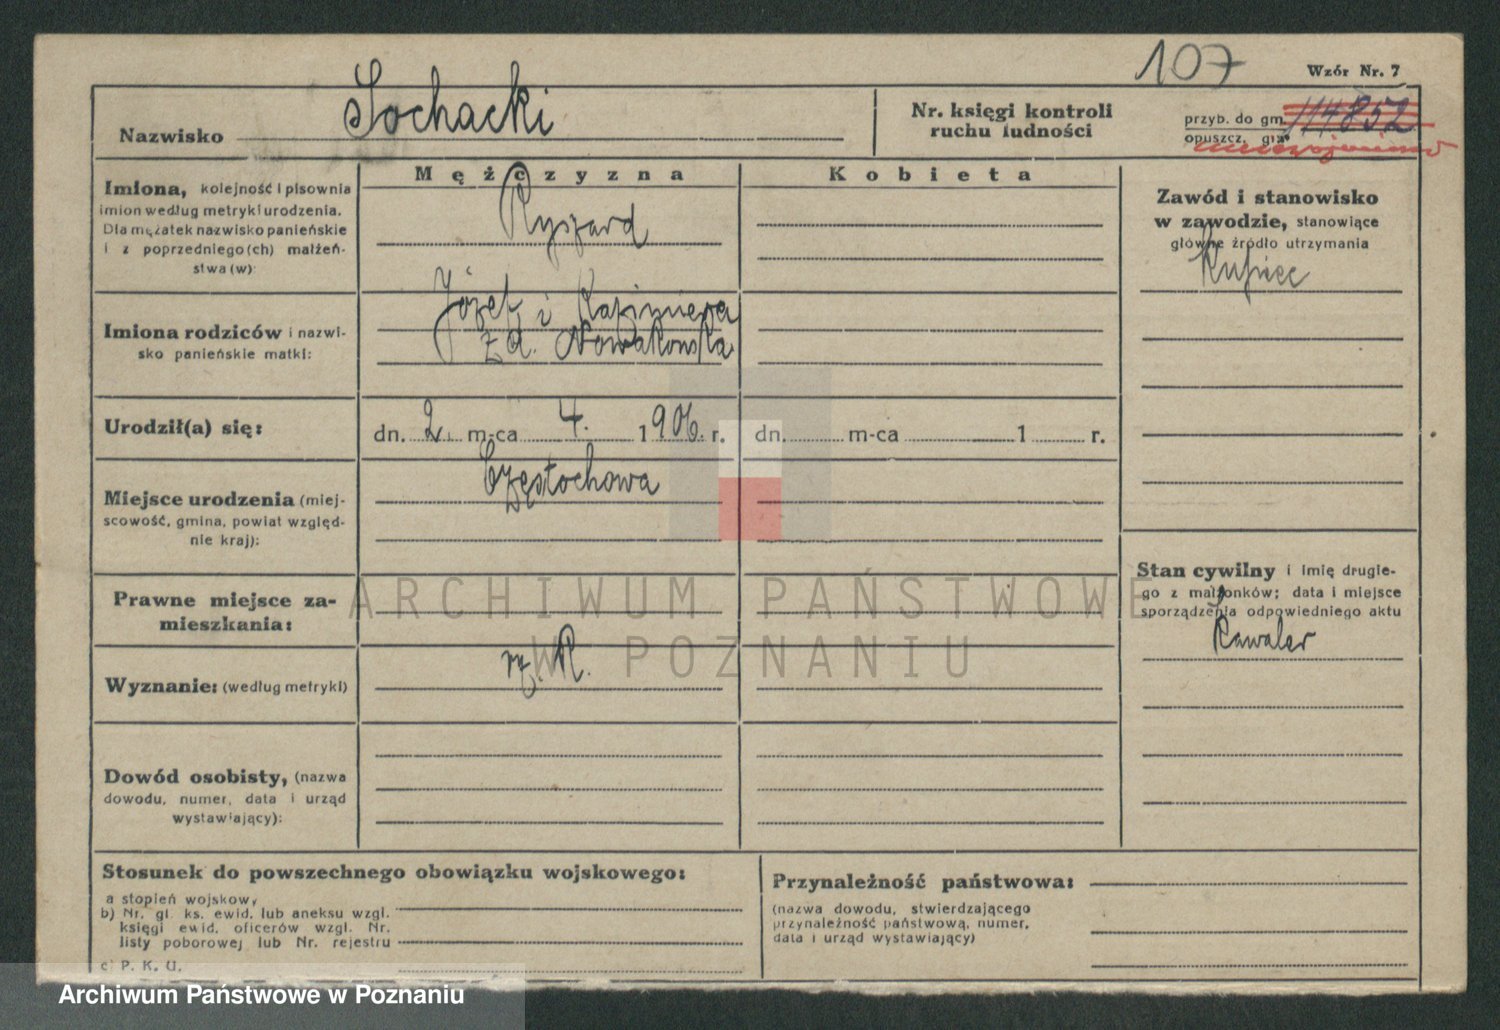 107
Wzór Nr. 7
Nazwisko Sochacki
Nr. księgi kontroli
ruchu ludności
przyb. do gm. 114852
opuszcz. gm.
Mężczyzna
Kobieta
Imiona, kolejność i pisownia
imion według metryki urodzenia.
Dla mężatek nazwisko panieńskie
i z poprzedniego(ch) małżeń-
stwa(w):
Ryszard
Imiona rodziców i nazwi-
sko panieńskie matki:
Józef i Kazimiera
zd. Nowakowska
Urodził(a) się:
dn. 2. m-ca 4. 1906. r.
dn. m-ca 1 r.
Miejsce urodzenia (miej-
scowość, gmina, powiat względ-
nie kraj):
Częstochowa
Prawne miejsce za-
mieszkania:
Wyznanie: (według metryki)
rz. K.
Dowód osobisty, (nazwa
dowodu, numer, data i urząd
wystawiający):
Zawód i stanowisko
w zawodzie, stanowiące
główne źródło utrzymania
Kupiec
Stan cywilny i imię drugie-
go z małżonków; data i miejsce
sporządzenia odpowiedniego aktu
Kawaler
Stosunek do powszechnego obowiązku wojskowego:
a stopień wojskowy,
b) Nr. gl. ks. ewid. lub aneksu wzgl.
księgi ewid. oficerów wzgl. Nr.
listy poborowej lub Nr. rejestru
c) P. K. U.
Przynależność państwowa:
(nazwa dowodu, stwierdzającego
przynależność państwową, numer,
data i urząd wystawiający)
ARCHIWUM PAŃSTWOWE
W POZNANIU
Archiwum Państwowe w Poznaniu